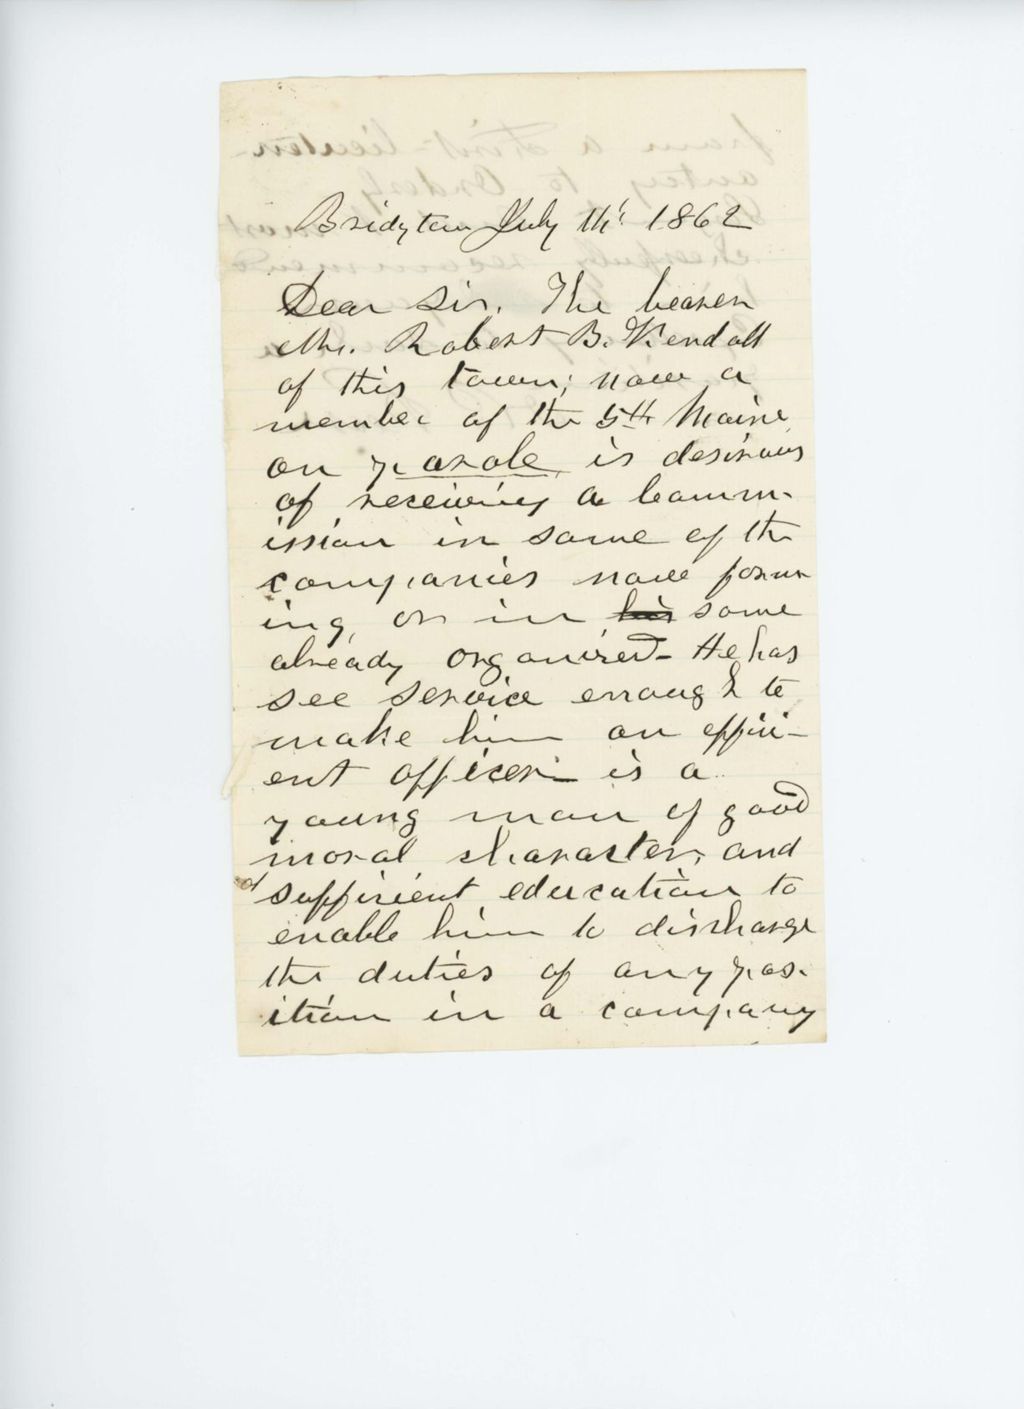 Bridgton July 14' 1862
Dear Sir. The bearer
Mr. Robert B. Kendall
of this town; now a
member of the 5th Maine
on parole is desirous
of receiving a comm-
ission in some of the
companies now form-
ing, or in his some
already organized - He has
see service enough to
make him an effici-
ent officer - is a
young man of good
moral character, and
of sufficient education to
enable him to discharge
the duties of any pos-
ition in a company